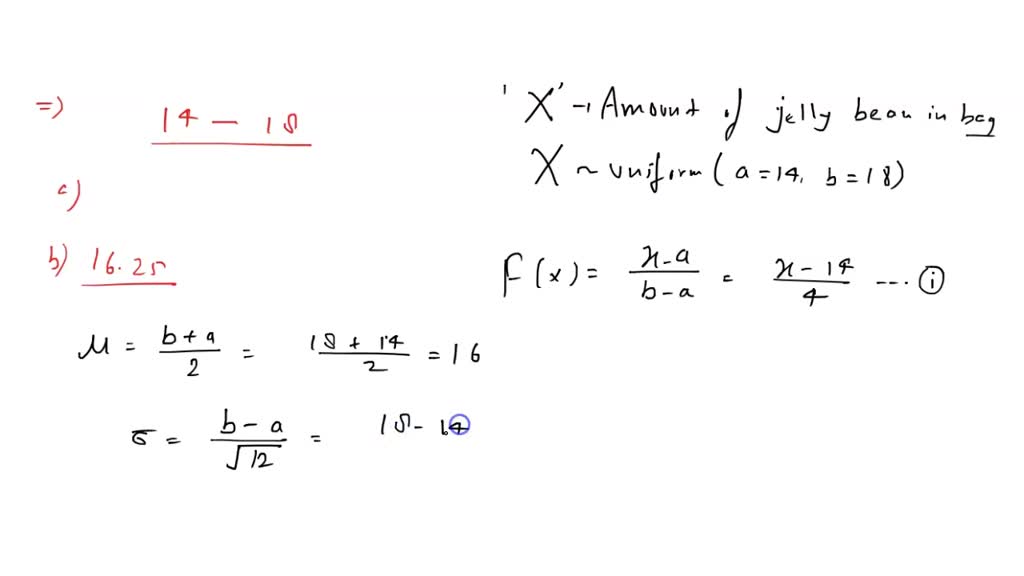 =) 14 - 18
c)
b) 16.25
μ = b+a/2 = 18 + 14/2 = 16
σ = b - a/√12 = 18 - 14
'X' → Amount of jelly bean in bag
X ~ uniform ( a = 14, b = 18 )
F (x) = x - a/b - a = x - 14/4 ---- (i)